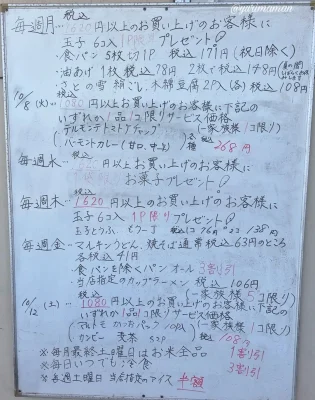 @yarimaman
税込
毎週月… 円以上のお買い上げのお客様に
玉子 6コ入 1P プレゼント
・食パン 5枚切1P 税込 171円 (祝日除く)
・油あげ 1枚 税込 78円 2枚で税込 148円
の雪 絹ごし、木綿豆腐 2P入(各) 税込 108円
税込
10/8 (火)… 1080円以上お買い上げのお客様に下記の
いずれか1品1コ限りサービス価格
デルモンテトマトケチャップ (一家族様1コ限り)
バーモントカレー(甘口、中辛) 各種 268円
税込
毎週水… 円以上お買い上げのお客様に
お菓子プレゼント
税込
毎週木… 1620円以上お買い上げのお客様に
玉子6コ入 1P限りプレゼント
毎週金… マルキンうどん、焼そば通常税込63円のところ
各税込 41円
・食パンを除くパン オール 3割引
・当店指定のカップラーメン 税込 106円
税込 (一家族様5コ限り)
10/12 (土)… 1080円以上お買い上げのお客様に下記の
いずれか1品1コ限りサービス価格
(マルトモ かつおパック (一家族様1コ限り)
カンピー 麦茶 52P 税込 108円
※毎月最終土曜日はお米全品 1割引
※毎日いつでも冷食 3割引
※毎週土曜日 当店指定のアイス 半額